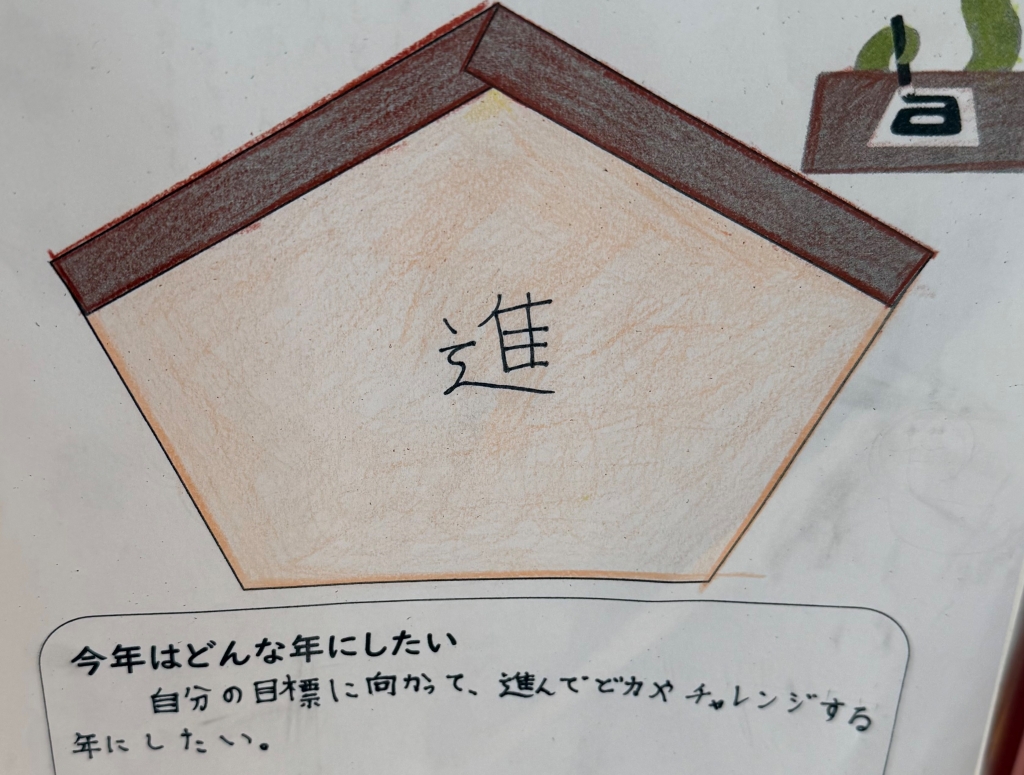 進
今年はどんな年にしたい
自分の目標に向かって、進んでど力やチャレンジする
年にしたい。